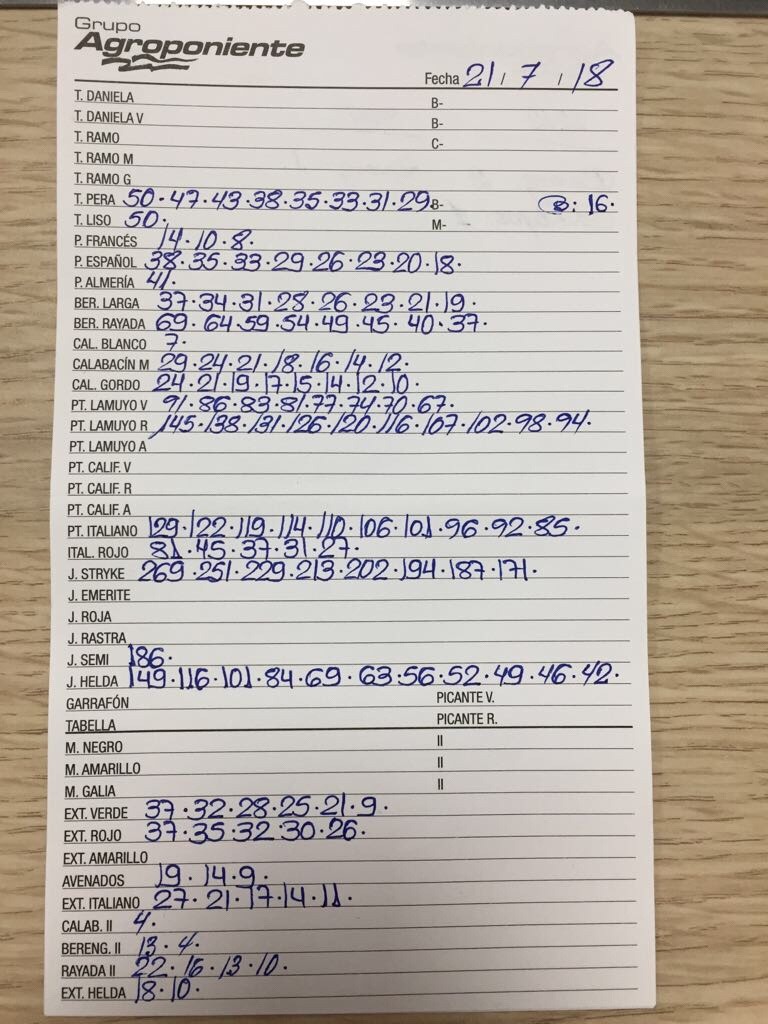 Grupo
Agroponiente
Fecha 21 / 7 / 18
T. DANIELA B-
T. DANIELA V B-
T. RAMO C-
T. RAMO M
T. RAMO G
T. PERA 50.47.43.38.35.33.31.29. B- B: 16.
T. LISO 50. M-
P. FRANCÉS 14.10.8.
P. ESPAÑOL 38.35.33.29.26.23.20.18.
P. ALMERÍA 41.
BER. LARGA 37.34.31.28.26.23.21.19.
BER. RAYADA 69.64.59.54.49.45.40.37.
CAL. BLANCO 7.
CALABACÍN M 29.24.21.18.16.14.12.
CAL. GORDO 24.21.19.17.15.14.12.10.
PT. LAMUYO V 91.86.83.81.77.74.70.67.
PT. LAMUYO R 145.138.131.126.120.116.107.102.98.94.
PT. LAMUYO A
PT. CALIF. V
PT. CALIF. R
PT. CALIF. A
PT. ITALIANO 129.122.119.114.110.106.101.96.92.85.
ITAL. ROJO 81.45.37.31.27.
J. STRYKE 269.251.229.213.202.194.187.171.
J. EMERITE
J. ROJA
J. RASTRA
J. SEMI 186.
J. HELDA 149.116.101.84.69.63.56.52.49.46.42.
GARRAFÓN PICANTE V.
TABELLA PICANTE R.
M. NEGRO II
M. AMARILLO II
M. GALIA II
EXT. VERDE 37.32.28.25.21.9.
EXT. ROJO 37.35.32.30.26.
EXT. AMARILLO
AVENADOS 19.14.9.
EXT. ITALIANO 27.21.17.14.11.
CALAB. II 4.
BERENG. II 13.4.
RAYADA II 22.16.13.10.
EXT. HELDA 18.10.